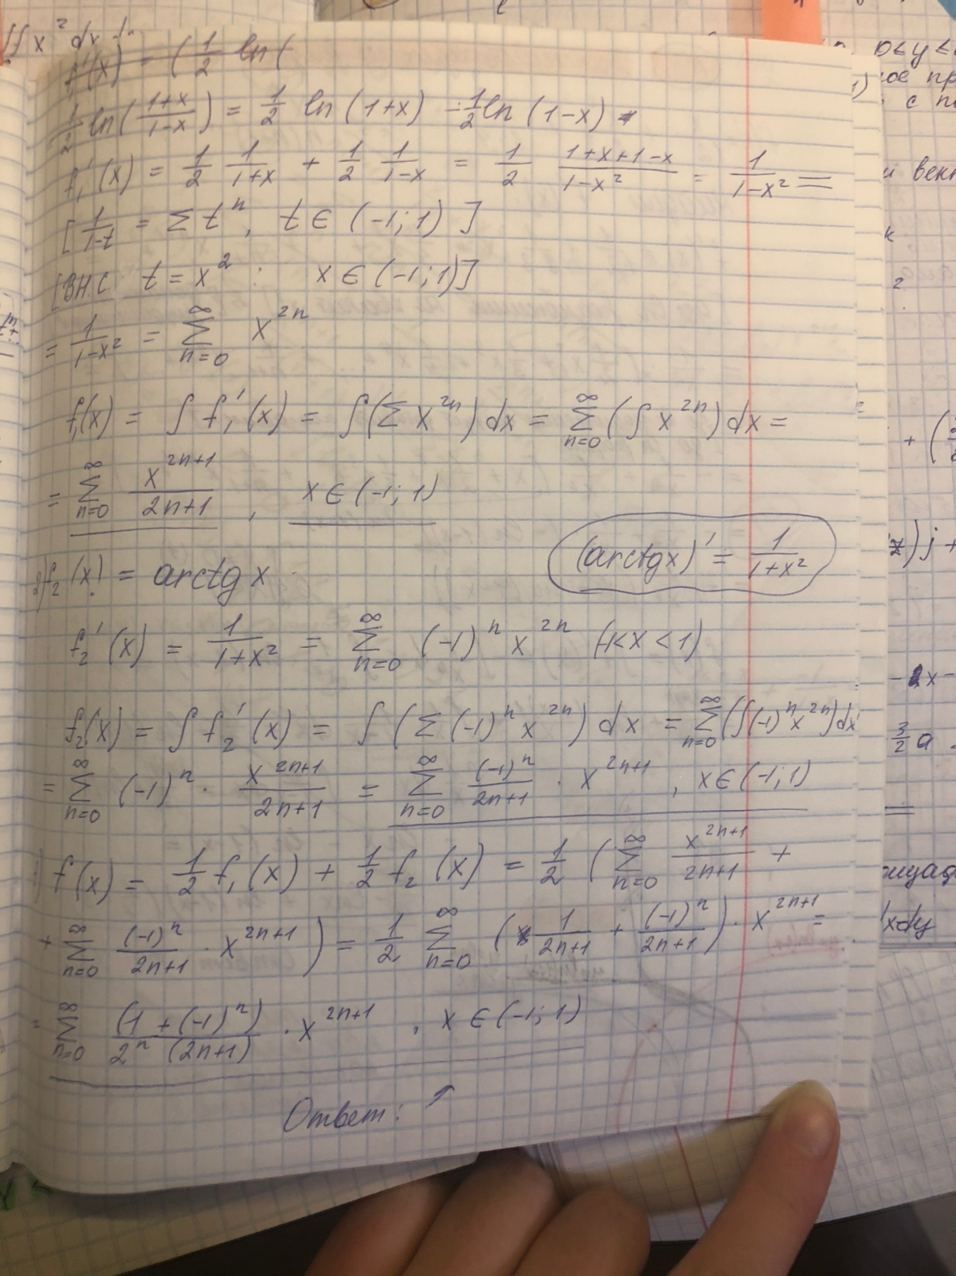 f₁'(x) = (1/2 ln(
1/2 ln((1+x)/(1-x)) = 1/2 ln(1+x) - 1/2 ln(1-x)
f₁'(x) = 1/2 1/(1+x) + 1/2 1/(1-x) = 1/2 (1+x+1-x)/(1-x²) = 1/(1-x²) =
[1/(1-t) = Σ tⁿ, t ∈ (-1; 1)]
t = x² : x ∈ (-1; 1)]
= 1/(1-x²) = Σ_{n=0}^∞ x^{2n}
f₁(x) = ∫ f₁'(x) = ∫(Σ x^{2n}) dx = Σ_{n=0}^∞ (∫ x^{2n}) dx =
= Σ_{n=0}^∞ x^{2n+1}/(2n+1), x ∈ (-1; 1)
(arctg x)' = 1/(1+x²)
f₂(x) = arctg x
f₂'(x) = 1/(1+x²) = Σ_{n=0}^∞ (-1)ⁿ x^{2n} (-1<x<1)
f₂(x) = ∫ f₂'(x) = ∫ (Σ (-1)ⁿ x^{2n}) dx = Σ_{n=0}^∞ (∫(-1)ⁿ x^{2n}) dx
= Σ_{n=0}^∞ (-1)ⁿ · x^{2n+1}/(2n+1) = Σ_{n=0}^∞ (-1)ⁿ/(2n+1) · x^{2n+1}, x ∈ (-1; 1)
f(x) = 1/2 f₁(x) + 1/2 f₂(x) = 1/2 (Σ_{n=0}^∞ x^{2n+1}/(2n+1) +
+ Σ_{n=0}^∞ (-1)ⁿ/(2n+1) x^{2n+1}) = 1/2 Σ_{n=0}^∞ (1/(2n+1) + (-1)ⁿ/(2n+1)) · x^{2n+1} =
= Σ_{n=0}^∞ (1+(-1)ⁿ)/(2ⁿ(2n+1)) · x^{2n+1}, x ∈ (-1; 1)
Ответ: ↑